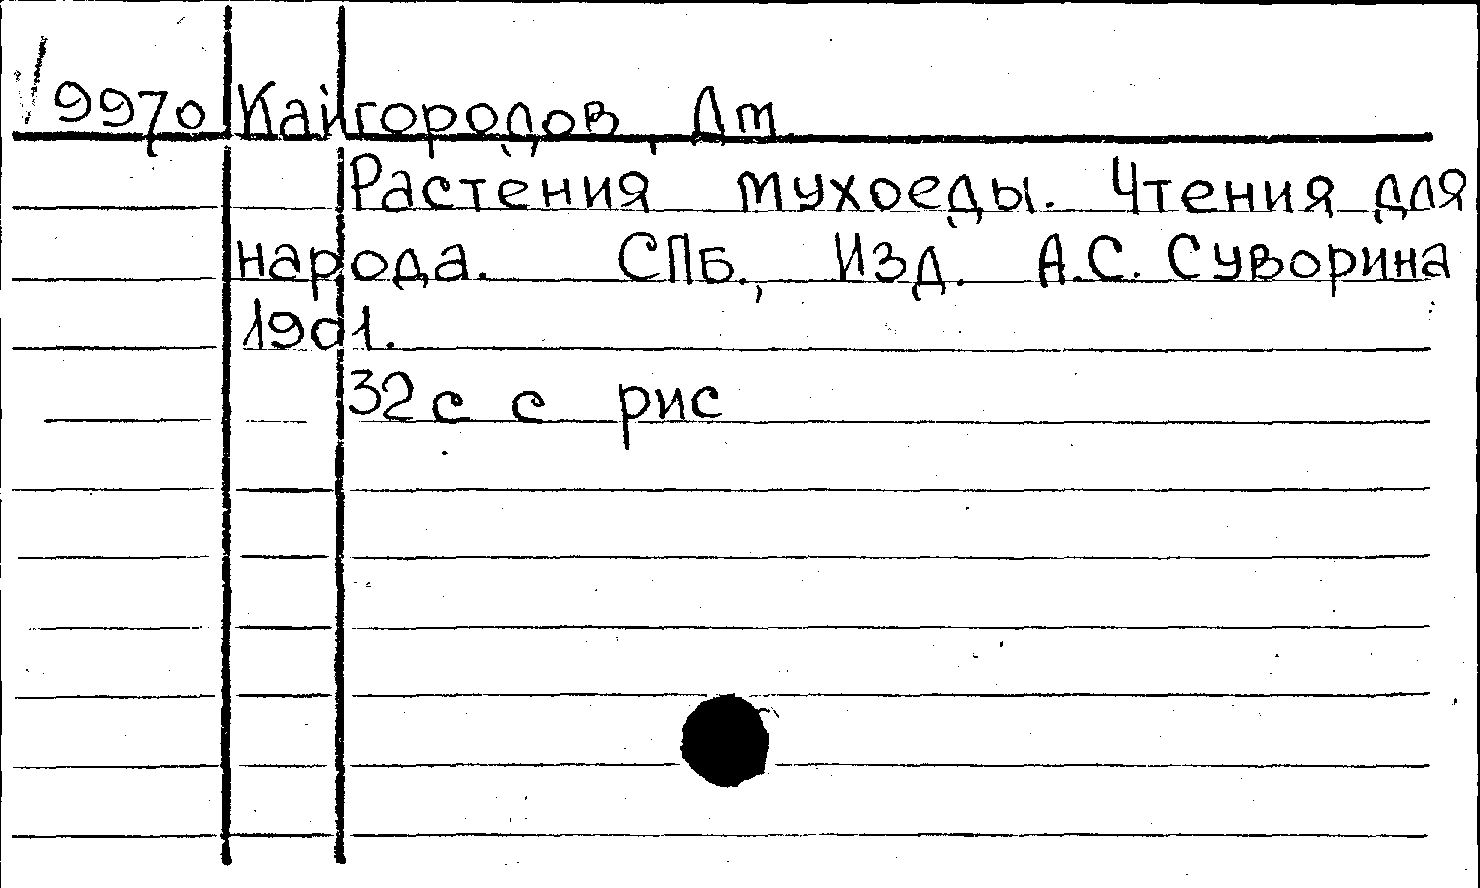 9970 Кайгородов, Дм
Растения мухоеды. Чтения для
народа. СПБ., Изд. А.С. Суворина
1901.
32с с рис